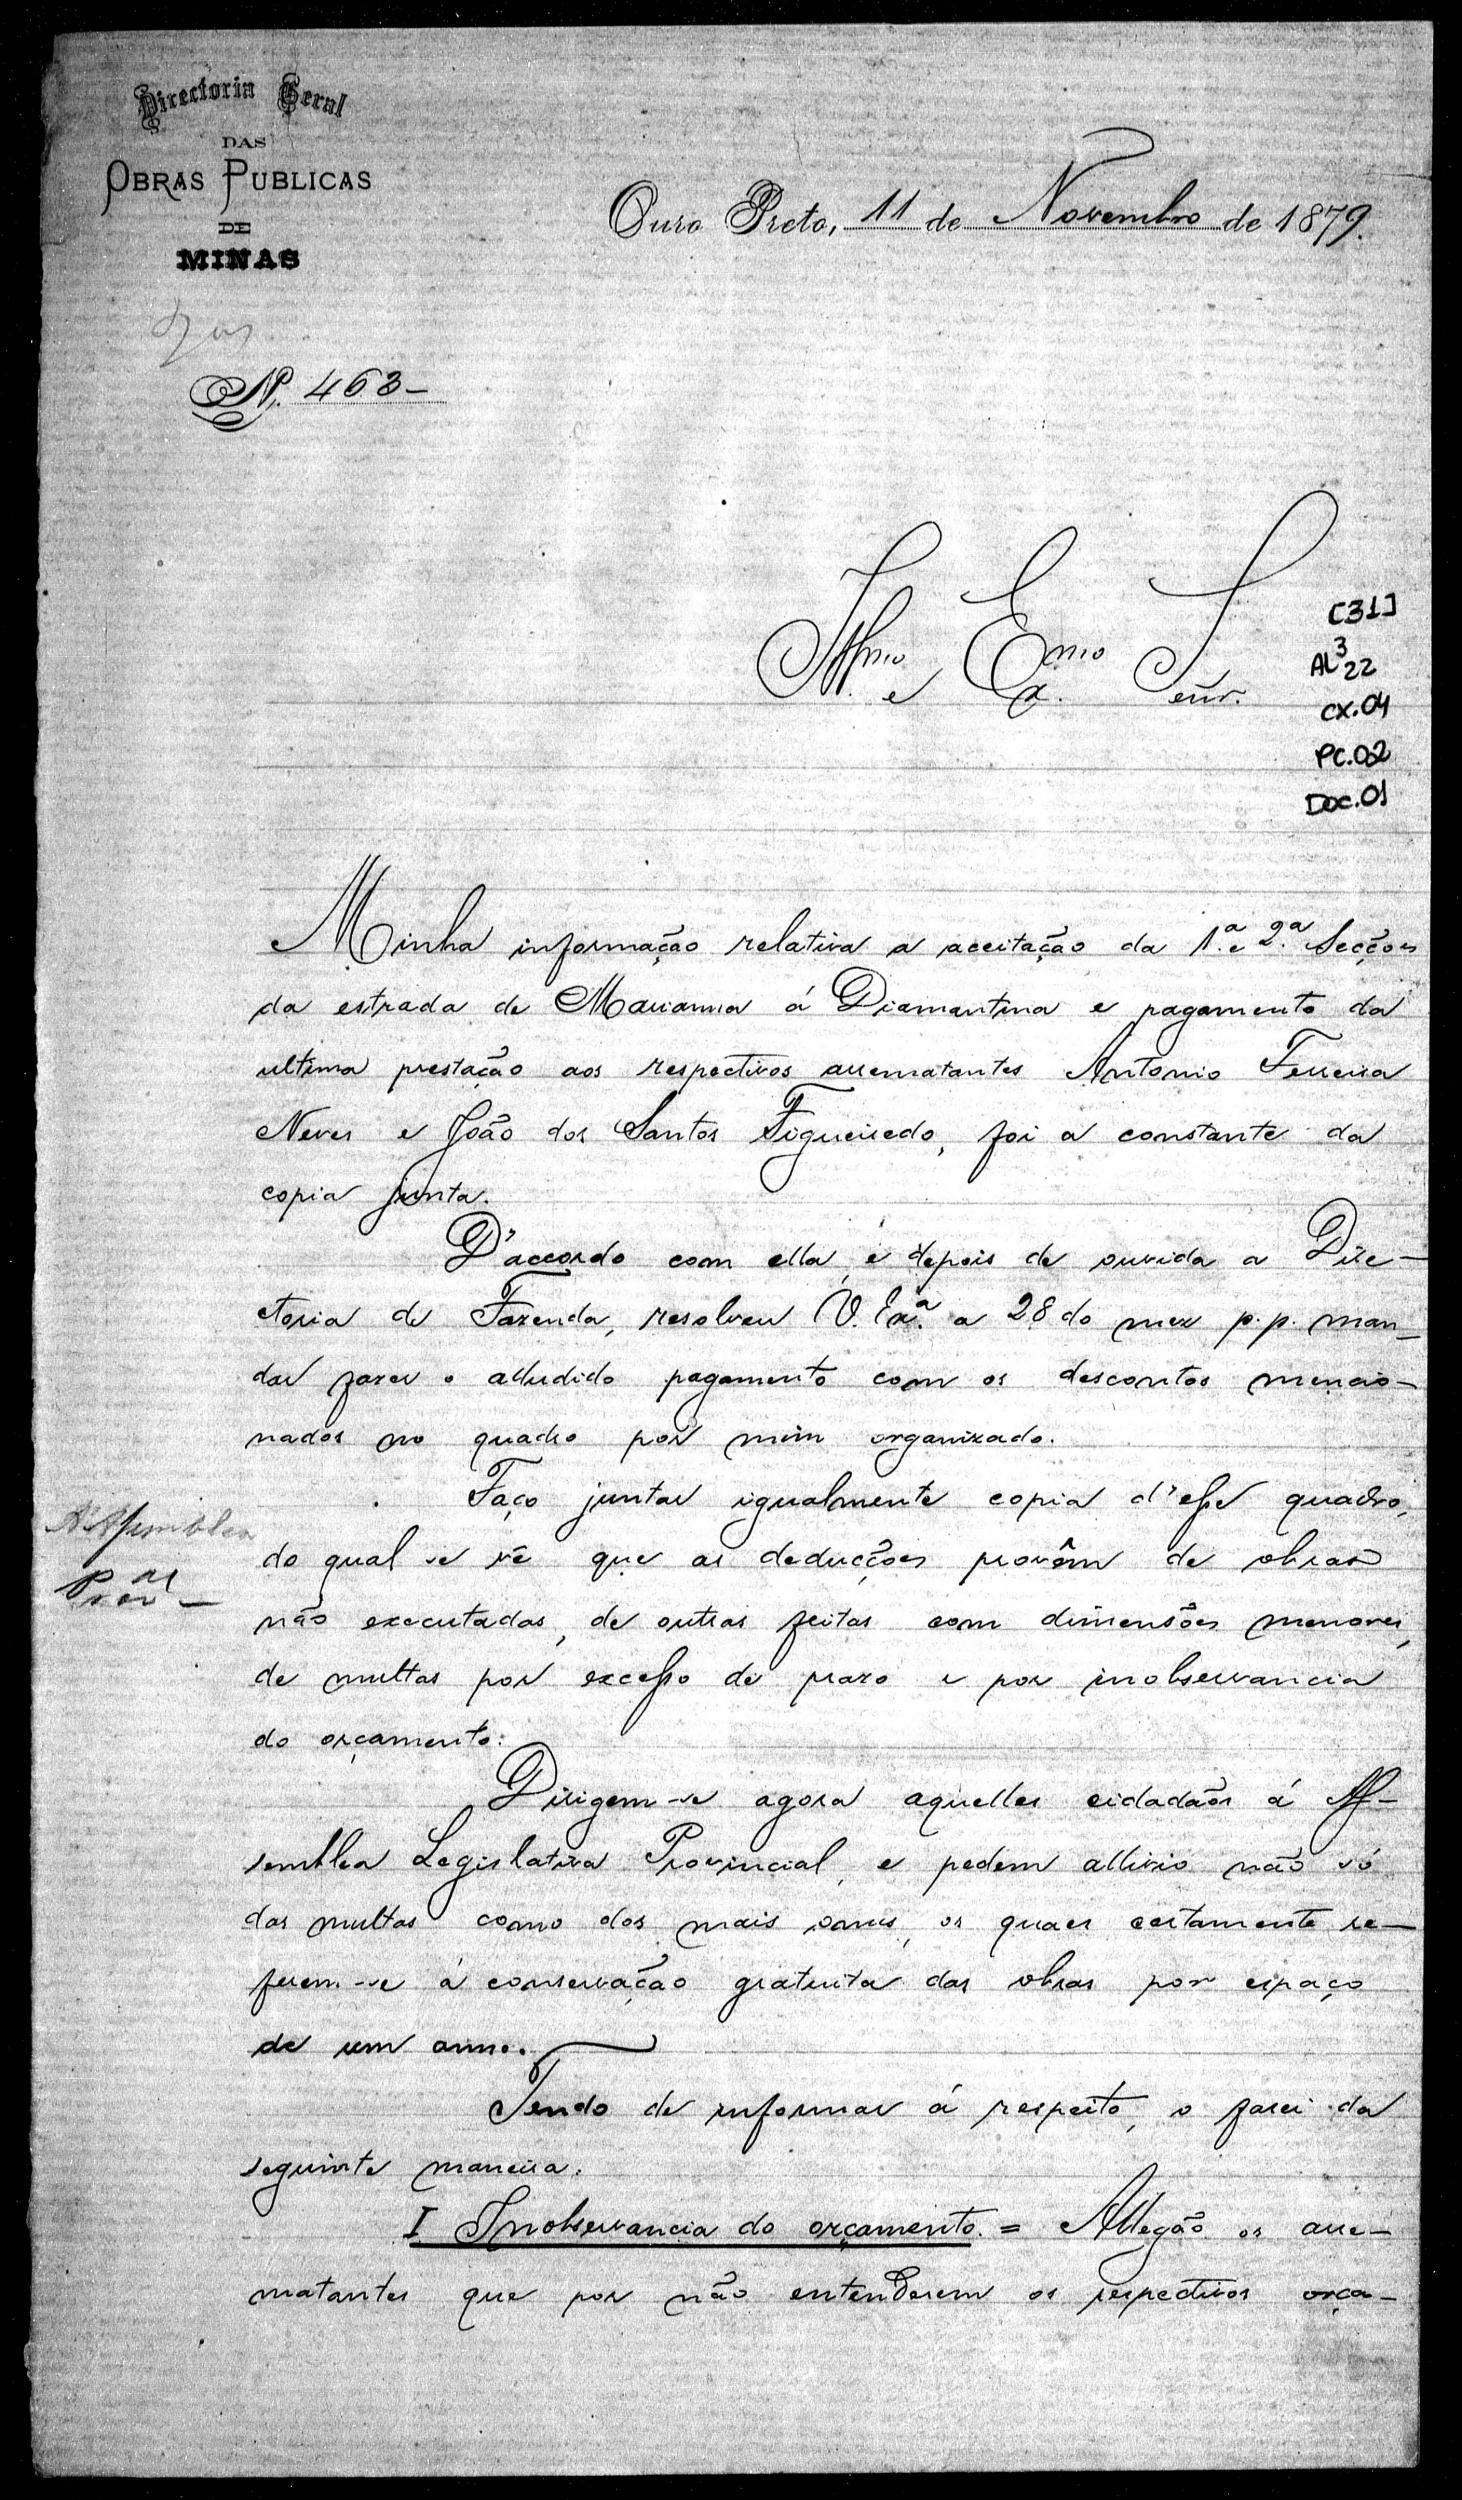 Directoria Geral
DAS
OBRAS PUBLICAS
DE
MINAS
Ouro Preto, 11 de Novembro de 1879.
N. 463-
Illmo e Exmo Señr.
[31]
AL 3 22
CX.04
PC.02
DOC.01
Minha informação relativa a aceitação da 1.a e 2.a Secções
da estrada de Marianna á Diamantina e pagamento da
ultima prestação aos respectivos arrematantes Antonio Ferreira
Neves e João dos Santos Figueiredo, foi a constante da
copia junta.
D'accordo com ella, e depois de ouvida a Dire-
ctoria de Fazenda, resolveu V. Exa. a 28 do mez p.p. man-
dar fazer o alludido pagamento com os descontos mencio-
nados no quadro por mim organizado.
Faço juntar igualmente copia d'esse quadro,
do qual se vê que as deducções provêm de obras
não executadas, de outras feitas com dimensões menores,
de multas por excesso de prazo e por inobservancia
do orçamento.
A' Assemblea
Prov.al -
Dirigem-se agora aquelles cidadãos á As-
semblea Legislativa Provincial, e pedem allivio não só
das multas como dos mais onus, os quaes certamente re-
ferem-se á conservação gratuita das obras por espaço
de um anno.
Tendo de informar á respeito, o farei da
seguinte maneira.
I Inobservancia do orçamento. = Allegão os arre-
matantes que por não entenderem os respectivos orça-